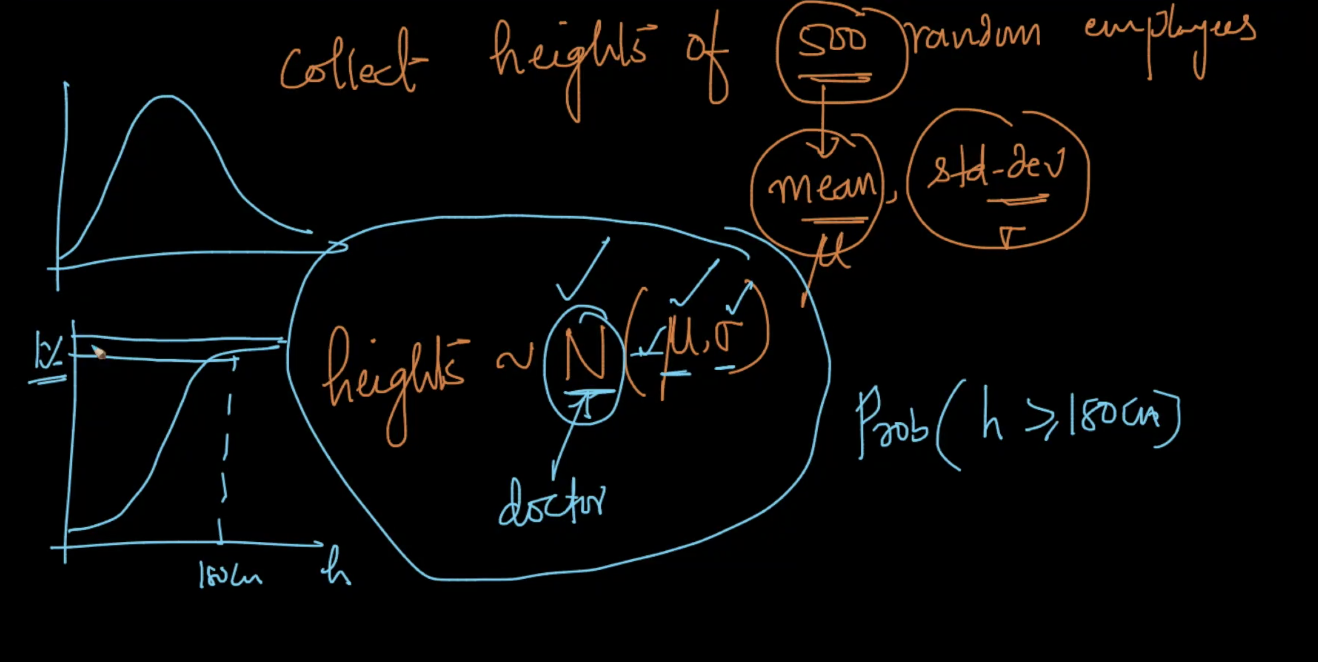 Collect heights of 500 random employees
mean, std-dev
μ σ
heights ~ N(μ, σ)
Prob(h ≥ 180cm)
doctor
180cm h